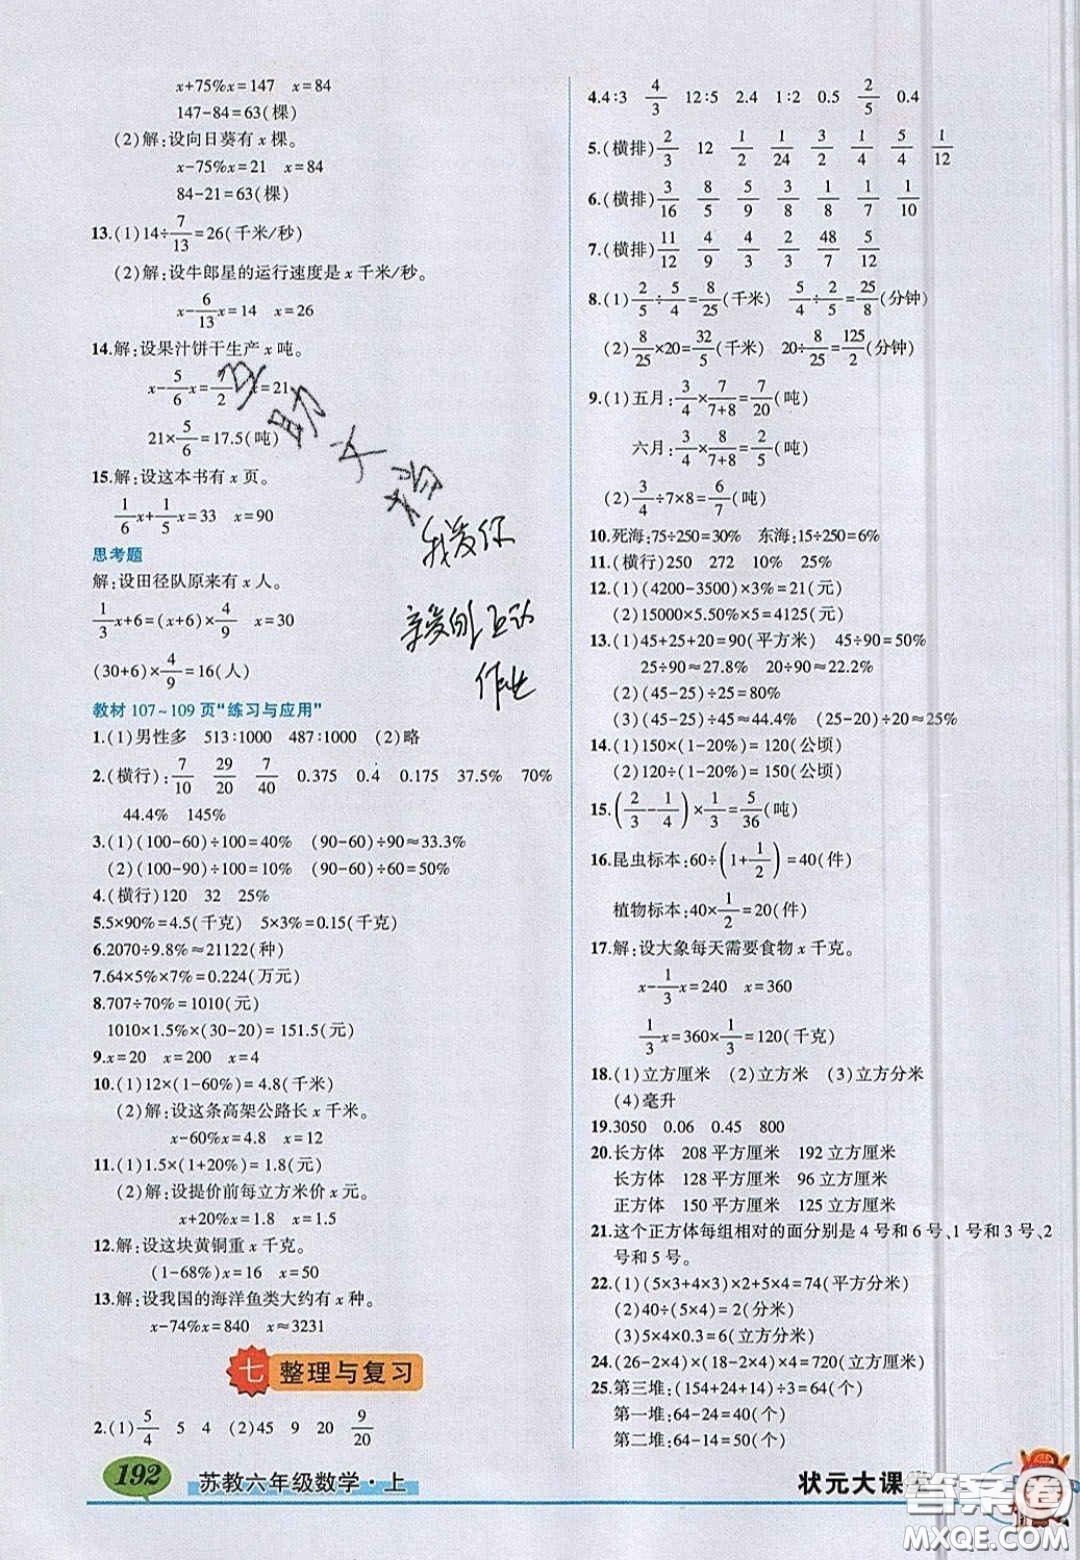 x+75%x=147 x=84
147-84=63(棵)
(2)解:设向日葵有 x 棵。
x-75%x=21 x=84
84-21=63(棵)
13.(1)14÷7/13=26(千米/秒)
(2)解:设牛郎星的运行速度是 x 千米/秒。
x-6/13x=14 x=26
14.解:设果汁饼干生产 x 吨。
x-5/6x=7/2 x=21
21×5/6=17.5(吨)
15.解:设这本书有 x 页。
1/6x+1/5x=33 x=90
思考题
解:设田径队原来有 x 人。
1/3x+6=(x+6)×4/9 x=30
(30+6)×4/9=16(人)
教材 107~109 页“练习与应用”
1.(1)男性多 513∶1000 487∶1000 (2)略
2.(横行):7/10 29/20 7/40 0.375 0.4 0.175 37.5% 70%
44.4% 145%
3.(1)(100-60)÷100=40% (90-60)÷90≈33.3%
(2)(100-90)÷100=10% (90-60)÷60=50%
4.(横行)120 32 25%
5.5×90%=4.5(千克) 5×3%=0.15(千克)
6.2070÷9.8%≈21122(种)
7.64×5%×7%=0.224(万元)
8.707÷70%=1010(元)
1010×1.5%×(30-20)=151.5(元)
9.x=20 x=200 x=4
10.(1)12×(1-60%)=4.8(千米)
(2)解:设这条高架公路长 x 千米。
x-60%x=4.8 x=12
11.(1)1.5×(1+20%)=1.8(元)
(2)解:设提价前每立方米价 x 元。
x+20%x=1.8 x=1.5
12.解:设这块黄铜重 x 千克。
(1-68%)x=16 x=50
13.解:设我国的海洋鱼类大约有 x 种。
x-74%x=840 x≈3231
七 整理与复习
2.(1)5/4 5 4 (2)45 9 20 9/20
4.4∶3 4/3 12∶5 2.4 1∶2 0.5 2/5 0.4
5.(横排)2/3 12 1/2 1/24 3/2 1/4 5/4 1/12
6.(横排)3/16 8/5 5/9 3/8 1/8 1/7 1/10
7.(横排)11/12 4/9 4/3 2/3 48/7 5/12
8.(1)2/5÷5/4=8/25(千米) 5/4÷2/5=25/8(分钟)
(2)8/25×20=32/5(千米) 20÷8/25=125/2(分钟)
9.(1)五月:3/4×7/(7+8)=7/20(吨)
六月:3/4×8/(7+8)=2/5(吨)
(2)3/4÷7×8=6/7(吨)
10.死海:75÷250=30% 东海:15÷250=6%
11.(横行)250 272 10% 25%
12.(1)(4200-3500)×3%=21(元)
(2)15000×5.50%×5=4125(元)
13.(1)45+25+20=90(平方米) 45÷90=50%
25÷90≈27.8% 20÷90≈22.2%
(2)(45-25)÷25=80%
(3)(45-25)÷45≈44.4% (25-20)÷20=25%
14.(1)150×(1-20%)=120(公顷)
(2)120÷(1-20%)=150(公顷)
15.(2/3-1/4)×1/3=5/36(吨)
16.昆虫标本:60÷(1+1/2)=40(件)
植物标本:40×1/2=20(件)
17.解:设大象每天需要食物 x 千克。
x-1/3x=240 x=360
1/3x=360×1/3=120(千克)
18.(1)立方厘米 (2)立方米 (3)立方分米
(4)毫升
19.3050 0.06 0.45 800
20.长方体 208 平方厘米 192 立方厘米
长方体 128 平方厘米 96 立方厘米
正方体 150 平方厘米 125 立方厘米
21.这个正方体每组相对的面分别是 4 号和 6 号、1 号和 3 号、2
号和 5 号。
22.(1)(5×3+4×3)×2+5×4=74(平方分米)
(2)40÷(5×4)=2(分米)
(3)5×4×0.3=6(立方分米)
24.(26-2×4)×(18-2×4)×4=720(立方厘米)
25.第三堆:(154+24+14)÷3=64(个)
第一堆:64-24=40(个)
第二堆:64-14=50(个)
我爱你
亲爱的互动
作业
192 苏教六年级数学·上
状元大课
答案圈
MXQE.COM